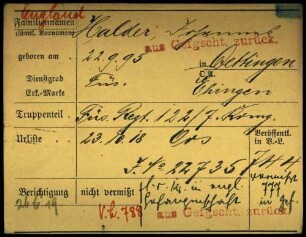 England
Familiennamen Halder, Johannes
(sämtl. Vornamen) aus Gefgscht. zurück.
geboren am 22.9.95 in Oettingen
Dienstgrad Füs. O.A. Ehingen
Erk.-Marke
Truppenteil Füs. Regt. 122/7. Komp.
Urliste 23.10.18 Veröffentl. in V.-L.
J. No 22735
Berichtigung nicht vermißt vermißt
26.6.19 in engl. 777
V.L. 788 Gefangenschaft in Gef.
aus Gefgscht. zurück.